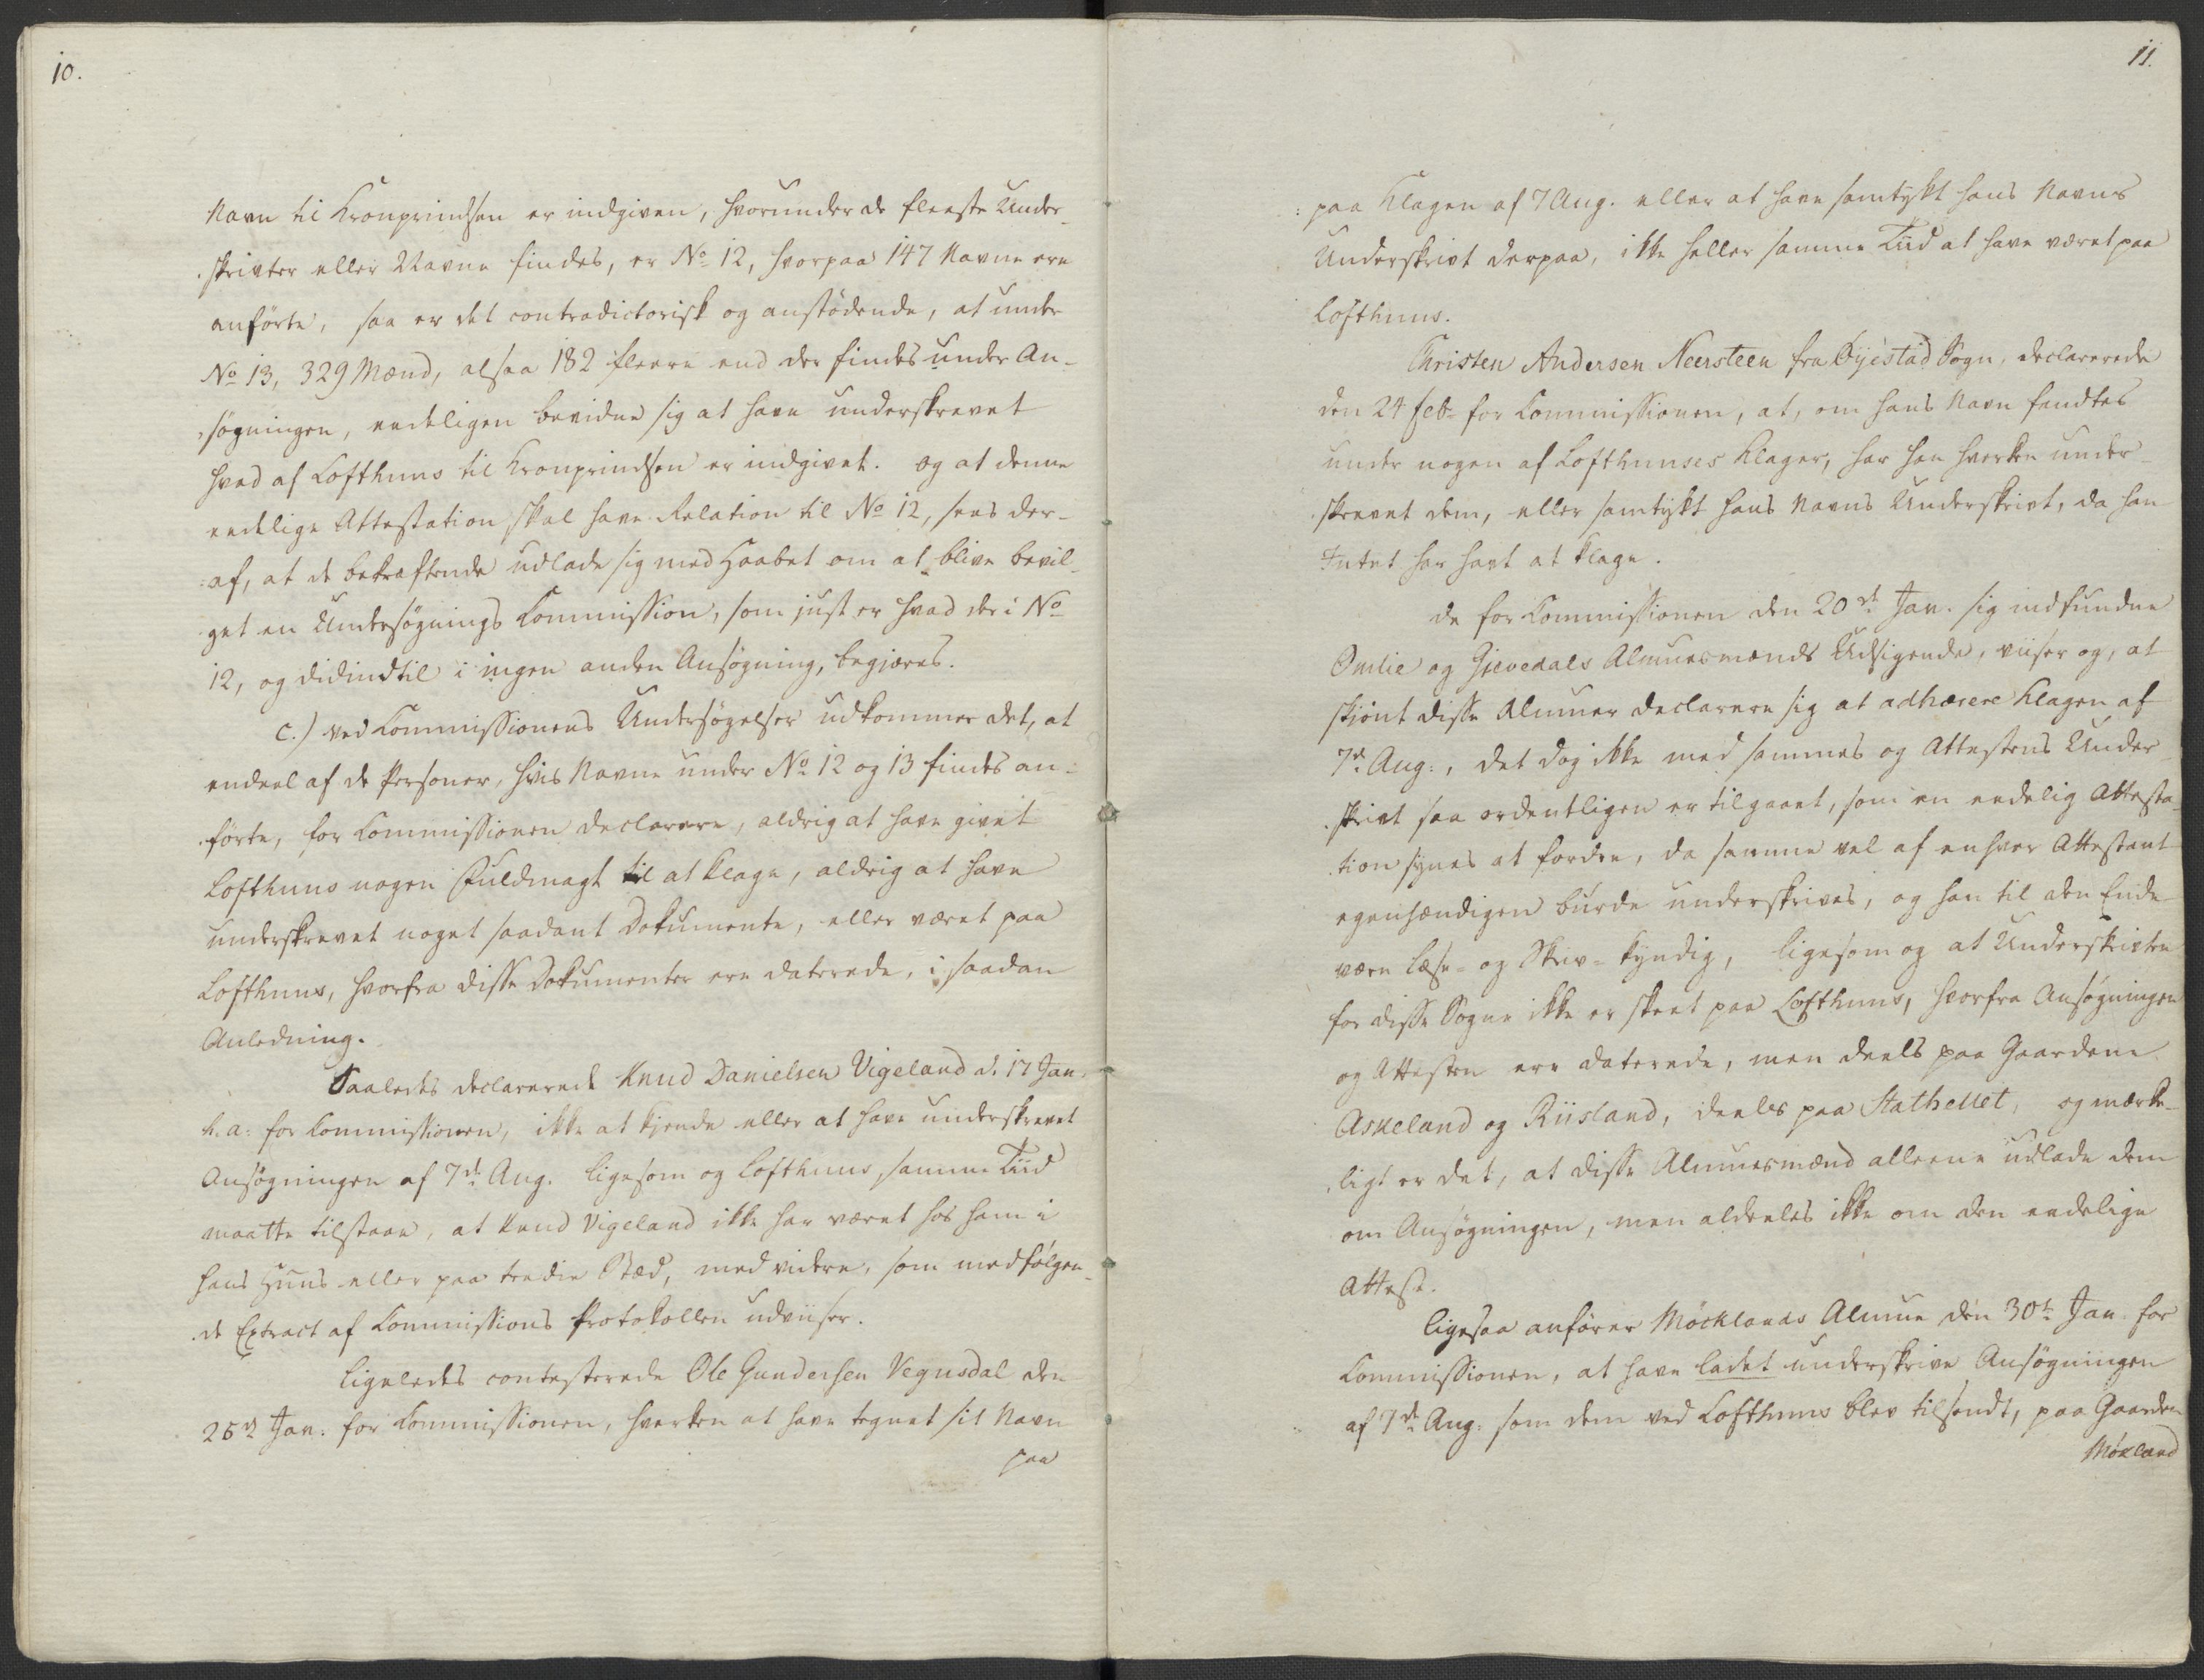 10.
Navn til Kronprindsen er indgiven, hvorunder de fleeste Under-
skrivter eller Navne findes, er No 12, hvorpaa 147 Navne ere
anförte, saa er det contradictorisk og anstödende, at under
No 13, 329 Mænd, alsaa 182 fleere end der findes under An-
søgningen, eedeligen bevidne sig at have underskrevet
hvad af Lofthuus til Kronprindsen er indgivet. og at denne
eedelige Attestation skal have Relation til No 12, sees der-
af, at de bekræftende udlade sig med Haabet om at blive bevil-
get en Undersøgnings Commission, som just er hvad der i No
12, og didindtil i ingen anden Ansøgning, begjæres.
C.) Ved Commissionens Undersøgelser udkommer det, at
endeel af de Personer, hvis Navne under No 12 og 13 findes an-
førte, for Commissionen declarere, aldrig at have givet
Lofthuus nogen Fuldmagt til at klage, aldrig at have
underskrevet noget saadant Dokumente, eller været paa
Lofthuus, hvorfra disse Dokumenter ere daterede, i saadan
Anledning.
Saaledes declarerede Knud Danielsen Vigeland d. 17 Jan.
h. a: for Commissionen, ikke at kjende eller at have underskrevet
Ansøgningen af 7de Aug. ligesom og Lofthuus samme Tiid
maatte tilstaae, at Knud Vigeland ikke har været hos ham i
hans Huus eller paa tredie Stæd, med videre, som medfølgen-
de Extract af Commissions Protokollen udviiser.
Ligeledes contesterede Ole Gundersen Vegusdal den
25de Jan. for Commissionen, hverken at have tegnet sit Navn
paa
11.
paa Klagen af 7 Aug. eller at have samtykt hans Navns
Underskrivt derpaa, ikke heller samme Tiid at have været paa
Lofthuus.
Christen Andersen Neersteen fra Øyestad Sogn, declarerede
den 24 Feb. for Commissionen, at, om hans Navn fandtes
under nogen af Lofthuuses Klager, har han hverken under-
skrevet dem, eller samtykt hans Navns Underskrivt, da han
Intet har havt at klage.
De for Commissionen den 20de Jan. sig indfundne
Omlie og Gjevedals Almuesmænds Udsigende, viiser og, at
skjönt disse Almuer declarere sig at adhærere Klagen af
7de Aug:, det dog ikke med sammes og Attestens Under-
skrivt saa ordentligen er tilgaaet, som en eedelig Attesta-
tion synes at fordre, da samme vel af enhver Attestant
egenhændigen burde underskrives, og han til den Ende
være læse- og Skriv-kyndig, ligesom og at Underskrivten
for disse Sogne ikke er skeet paa Lofthuus, hvorfra Ansøgningen
og Attesten ere daterede, men deels paa Gaardene
Askeland og Riisland, deeles paa Stathellet, og mærke-
ligt er det, at disse Almuesmænd alleene udlade dem
om Ansøgningen, men aldeeles ikke om den eedelige
Attest.
Ligesaa anfører Möcklands Almue den 30te Jan. for
Commissionen, at have ladet underskrive Ansøgningen
af 7de Aug. som dem ved Lofthuus blev tilsendt, paa Gaarden
Möcland